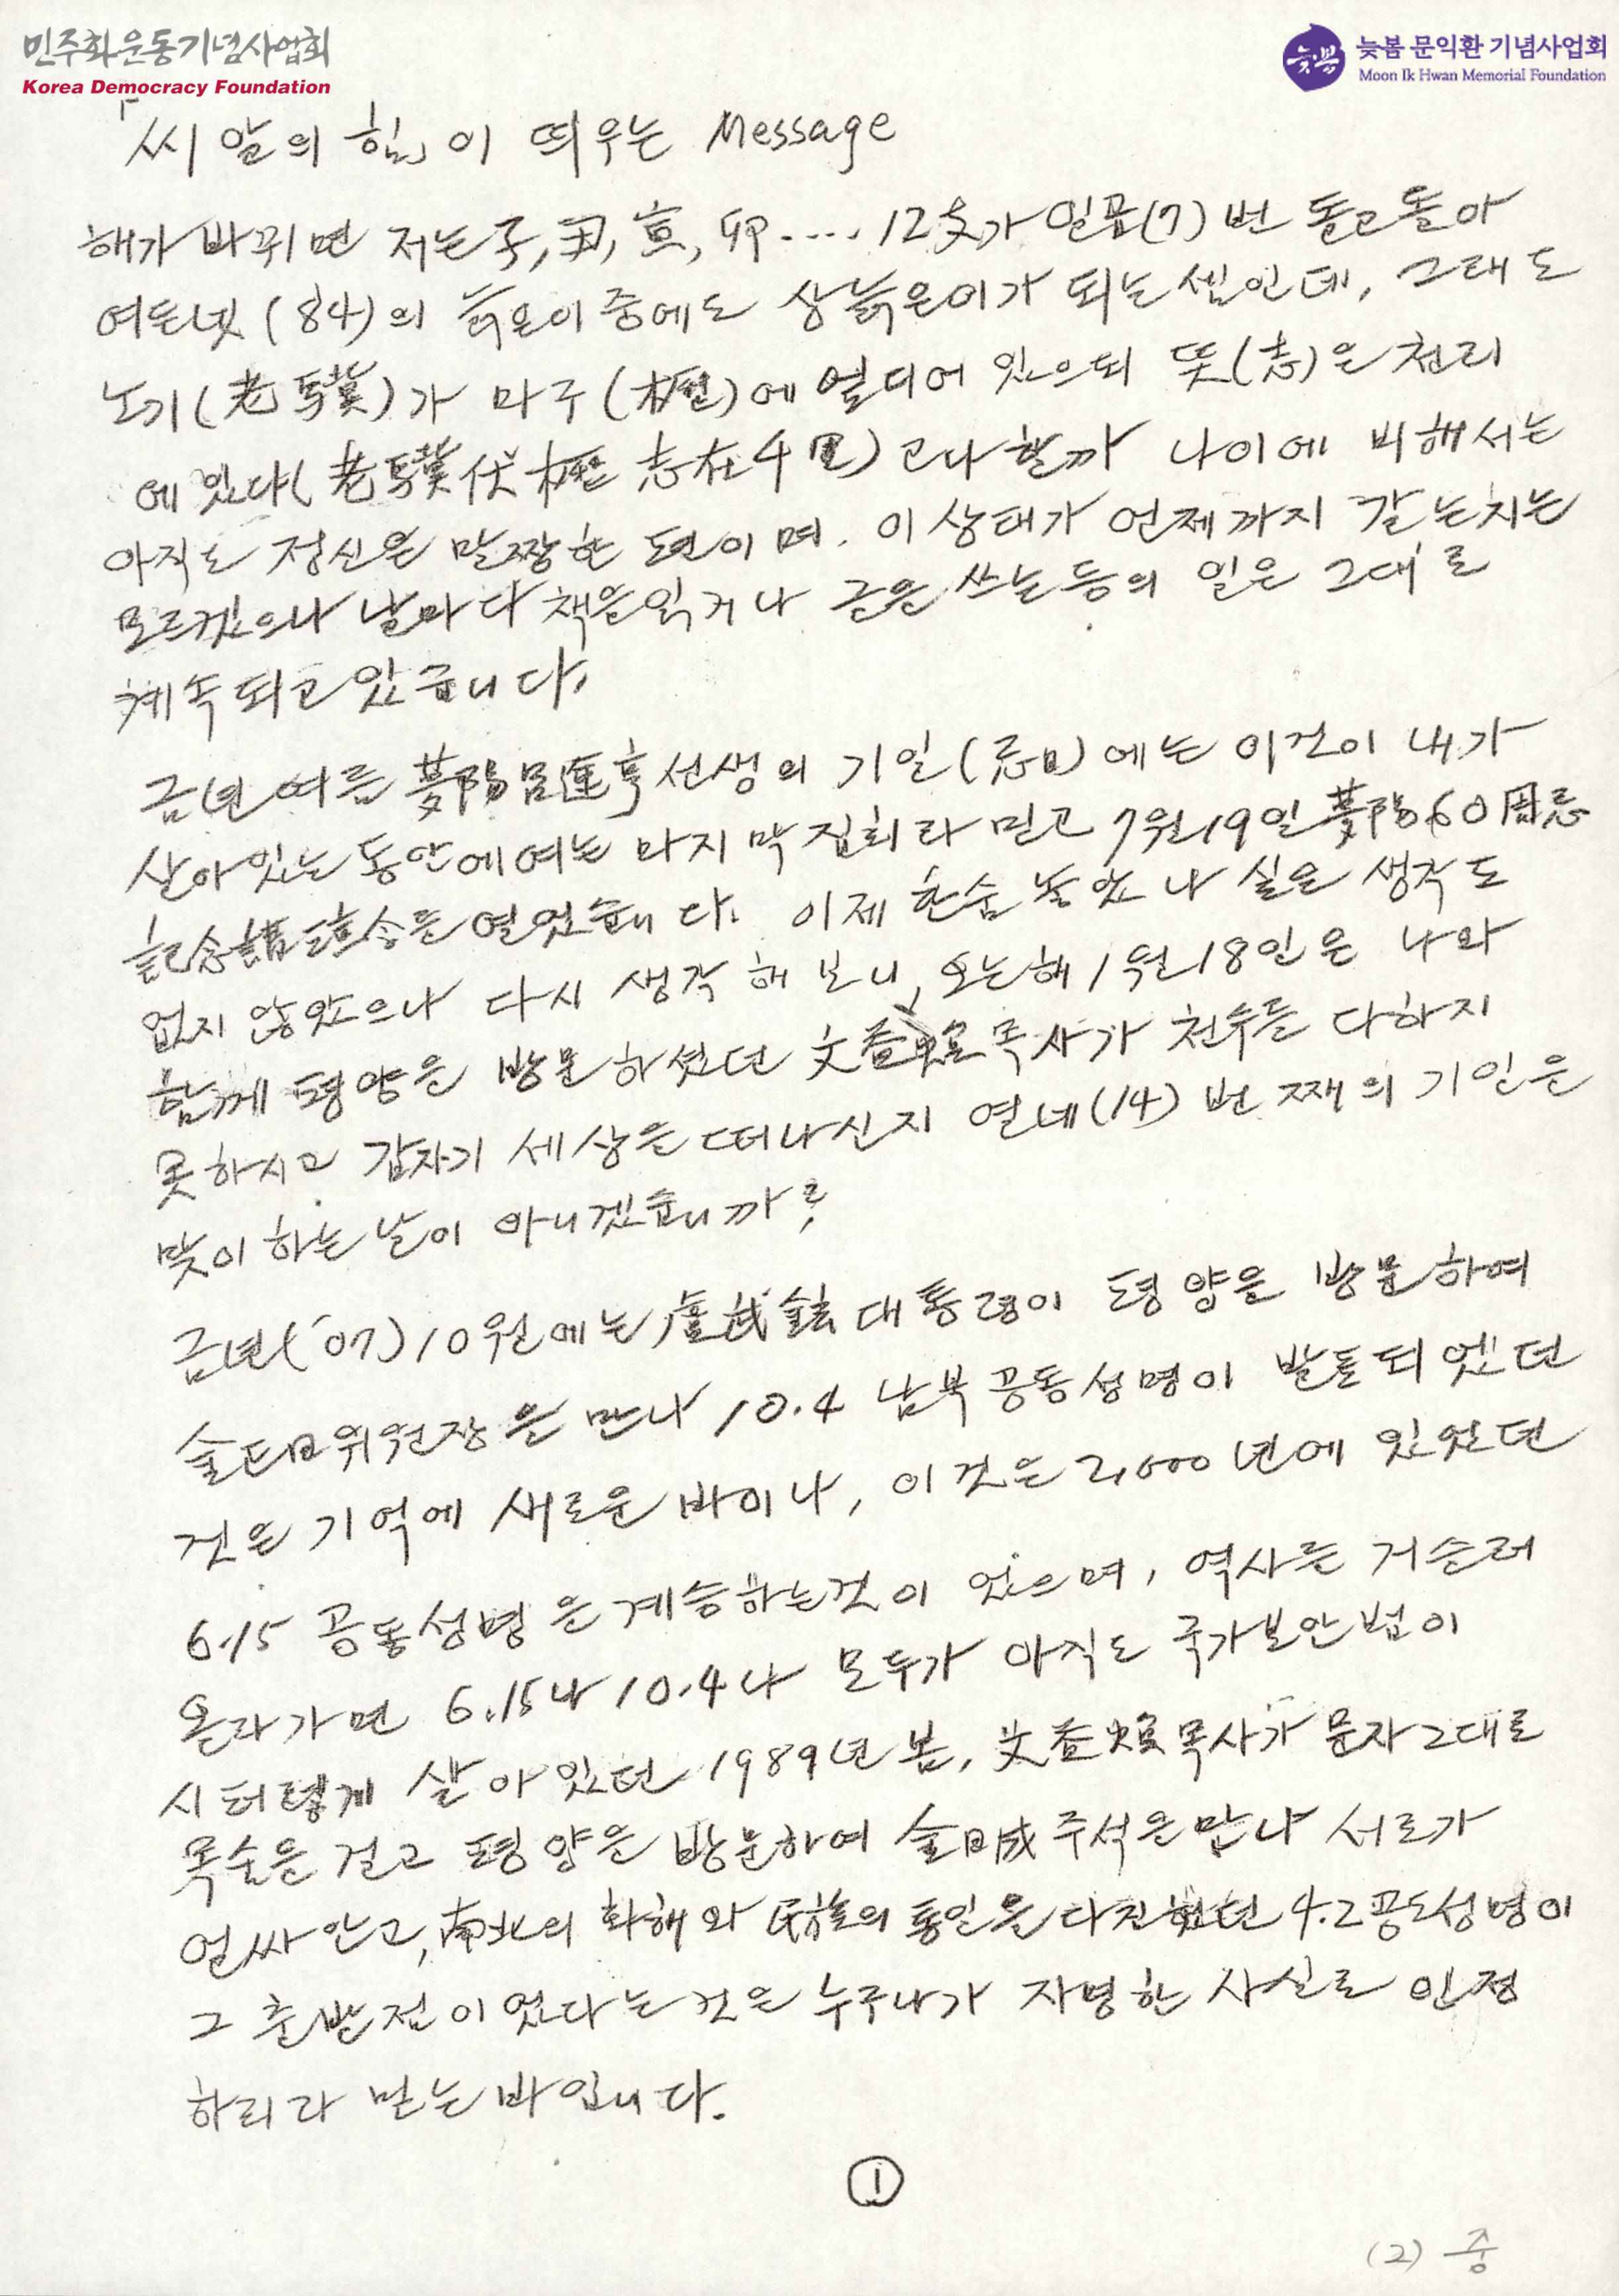 민주화운동기념사업회
Korea Democracy Foundation
늦봄
늦봄 문익환 기념사업회
Moon Ik Hwan Memorial Foundation
「씨알의 힘」이 띄우는 Message
해가 바뀌면 저는 子, 丑, 寅, 卯.... 12支가 일곱(7) 번 돌고돌아
여든넷 (84)의 늙은이 중에도 상늙은이가 되는 셈인데, 그래도
노기(老驥)가 마구(木歷)에 엎디어 있으되 뜻(志)은 천리
에 있다(老驥伏木歷 志在千里)고나 할까 나이에 비해서는
아직도 정신은 말짱한 편이며. 이 상태가 언제까지 갈는지는
모르겠으나 날마다 책을 읽거나 글을 쓰는 등의 일은 그대로
계속되고 있습니다.
금년 여름 夢陽呂運亨선생의 기일(忌日)에는 이것이 내가
살아있는 동안에 여는 마지막 집회라 믿고 7월19일 夢陽60周忌
記念講演会를 열었습니다. 이제 한숨 놓았나 싶은 생각도
없지 않았으나 다시 생각해 보니, 오는해 1월18일은 나와
함께 평양을 방문하셨던 文益煥목사가 천수를 다하지
못하시고 갑자기 세상을 떠나신지 열네(14) 번째의 기일을
맞이 하는 날이 아니겠습니까?
금년('07)10월에는 盧武鉉대통령이 평양을 방문하여
金正日위원장을 만나 10.4 남북공동성명이 발표되었던
것은 기억에 새로운 바이나, 이것은 2,000년에 있었던
6.15 공동성명을 계승하는것이 었으며, 역사를 거슬러
올라가면 6.15나 10.4나 모두가 아직도 국가보안법이
시퍼렇게 살아있던 1989년 봄, 文益煥목사가 문자그대로
목숨을 걸고 평양을 방문하여 金日成주석을 만나 서로가
얼싸안고, 南北의 화해와 民族의 통일을 다짐했던 4.2공도성명이
그 출발점이었다는 것은 누구나가 자명한 사실로 인정
하리라 믿는 바입니다.
①
(2) 중